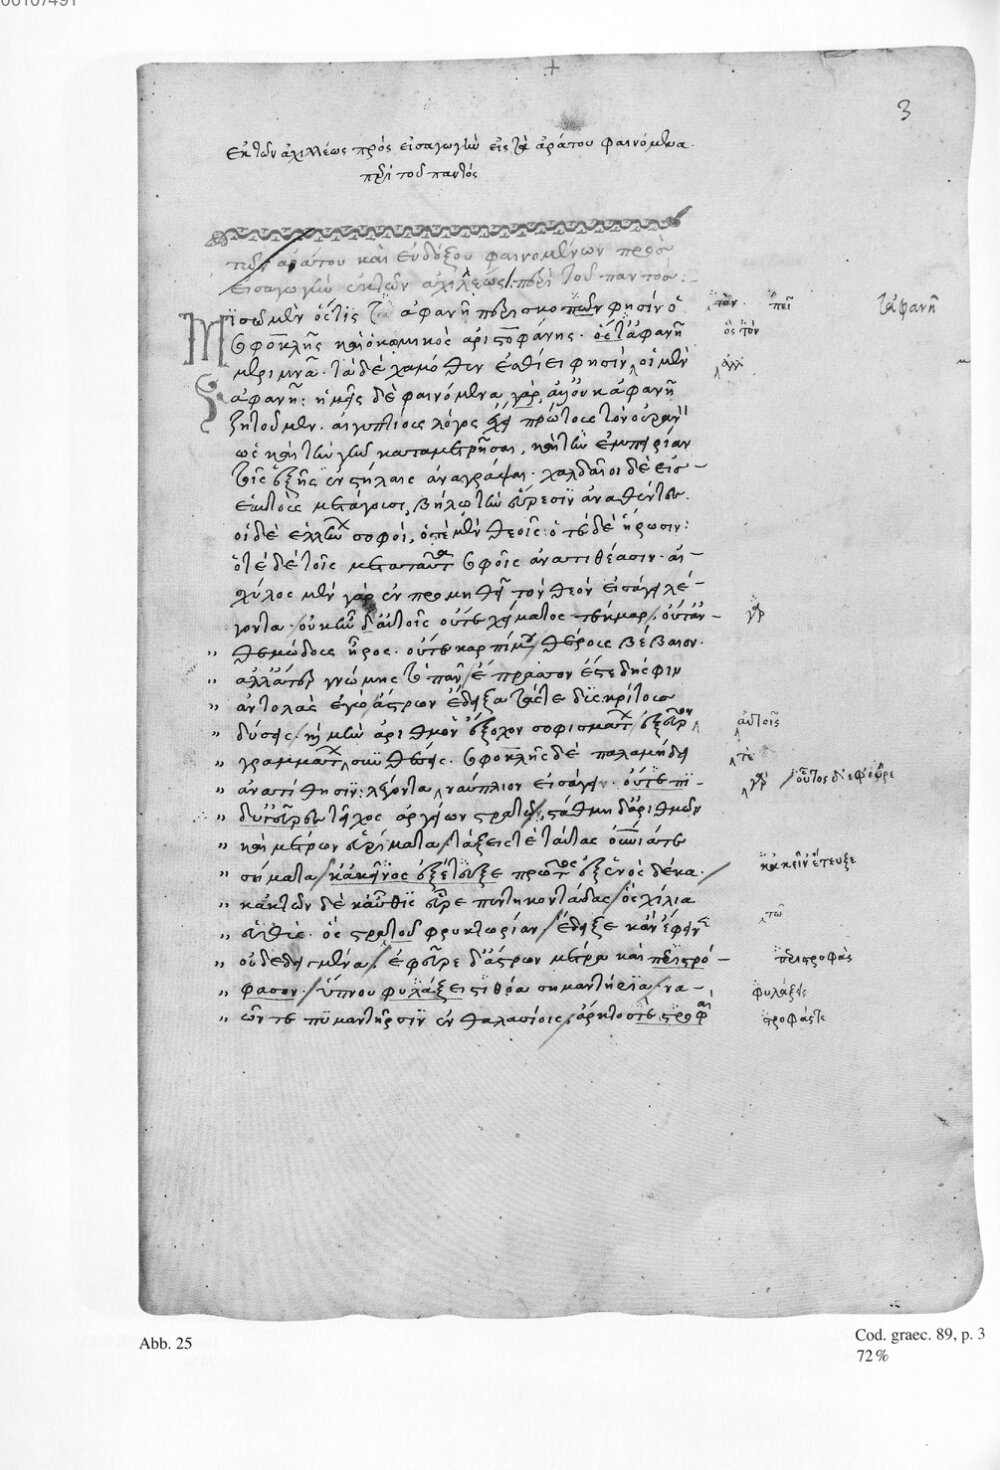 00107491
3
ἐκ τῶν ἀχιλλέως πρὸς εἰσαγωγὴν εἰς τὰ ἀράτου φαινόμενα.
περὶ τοῦ παντός
τῶν ἀράτου καὶ εὐδόξου φαινομένων πρὸς
εἰσαγωγὴν ἐκ τῶν ἀχιλέως περὶ τοῦ παντός:
Μισῶ μὲν ὅστις ἀφανῆ περισκοπῶν φησὶν ὁ
σοφοκλῆς καὶ ὁ κωμικὸς ἀριστοφάνης. ὃς τἀφανῆ
μεριμνᾶ. τὰ δὲ χαμόθεν ἐσθίει φησὶν, οἱ μὲν
ἀφανῆ: ἡμεῖς δὲ φαινόμενα γὰρ οὐκ ἀφανῆ
ζητοῦμεν. αἰγυπτίους λόγος ἔχει πρώτους τὸν οὐρανὸν
ὡς καὶ τὴν γῆν καταμετρῆσαι, καὶ τὴν ἐμπειρίαν
τοῖς ἑξῆς ἐν στήλαις ἀναγράψαι. χαλδαῖοι δὲ εἰς
ἑαυτοὺς μετάγουσι, βήλῳ τὴν εὕρεσιν ἀναθέντες.
οἱ δὲ ἑλλήνων σοφοί, ὁτὲ μὲν θεοῖς: ὁτὲ δὲ ἥρωσιν:
ὁτὲ δὲ τοῖς μετὰ ταῦτα σοφοῖς ἀνατιθέασιν. αἰ-
χύλος μὲν γὰρ ἐν προμηθεῖ τὸν θεὸν εἰσάγει λέ-
γοντα. οὐκ ἦν δ' αὐτοῖς οὔτε χείματος τέκμαρ / οὔτ' ἀν-
" θεμώδους ἦρος. οὔτε καρπίμου / θέρους βέβαιον.
" ἀλλ' ἄτερ γνώμης τὸ πᾶν / ἔπραττον ἔστε δή σφιν
" ἀντολὰς ἐγὼ / ἄστρων ἔδειξα τάς τε δυσκρίτους
" δύσεις. καὶ μὴν ἀριθμὸν ἔξοχον σοφισμάτων / ἐξεῦρον
" γραμμάτων συνθέσεις. σοφοκλῆς δὲ παλαμήδει
" ἀνατίθησιν: λέγοντα ναύπλιον εἰσάγει. οὔτε πι-
" τεῖχος ἀργείων στρατῷ / στάθμη δ' ἀριθμῶν
" καὶ μέτρων εὑρήματα / τάξεις τε ταύτας οὐράνιά τε
" σήματα / κἀκεῖνος ἐξέτευξε πρῶτος ἐξ ἑνὸς δέκα. /
" κἀκ τῶν δέκ' αὖθις εὗρε πεντηκοντάδας / ὃς χίλια
" εὐθὺς. ὃς στρατοῦ φρυκτωρίαν / ἔδειξε κἀνέφηνε
" οὐ δεδειγμένα. / ἐφεῦρε δ' ἄστρων μέτρα καὶ περιστρο-
" φάσον. / ὕπνου φυλάξει στιθρὰ σημαντήρια / να-
" ῶν τε ποιμαντῆρσιν ἐνθαλασσίοις / ἄρκτος τε στροφαὶ
τὸν.
τἀφανῆ
ὃς τὸν
ἀλλ'
γρ
αὐτοῖς
τε
γρ / οὗτος δ' ἐφεῦρε
κἀκεῖν' ἔτευξε
τῶ
περιστροφὰς
φυλάξεις
στροφάς τε
Abb. 25
Cod. graec. 89, p. 3
72%